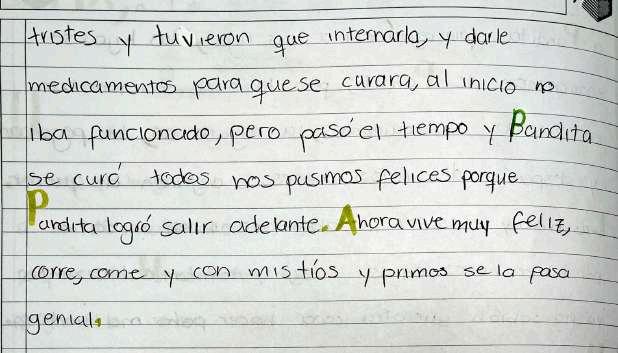 tristes y tuvieron que internarla, y darle
medicamentos para que se curara, al inicio no
iba funcionado, pero pasó el tiempo y Pandita
se curó todos nos pusimos felices porque
Pandita logró salir adelante. Ahora vive muy feliz,
corre, come y con mis tíos y primos se la pasa
genial.